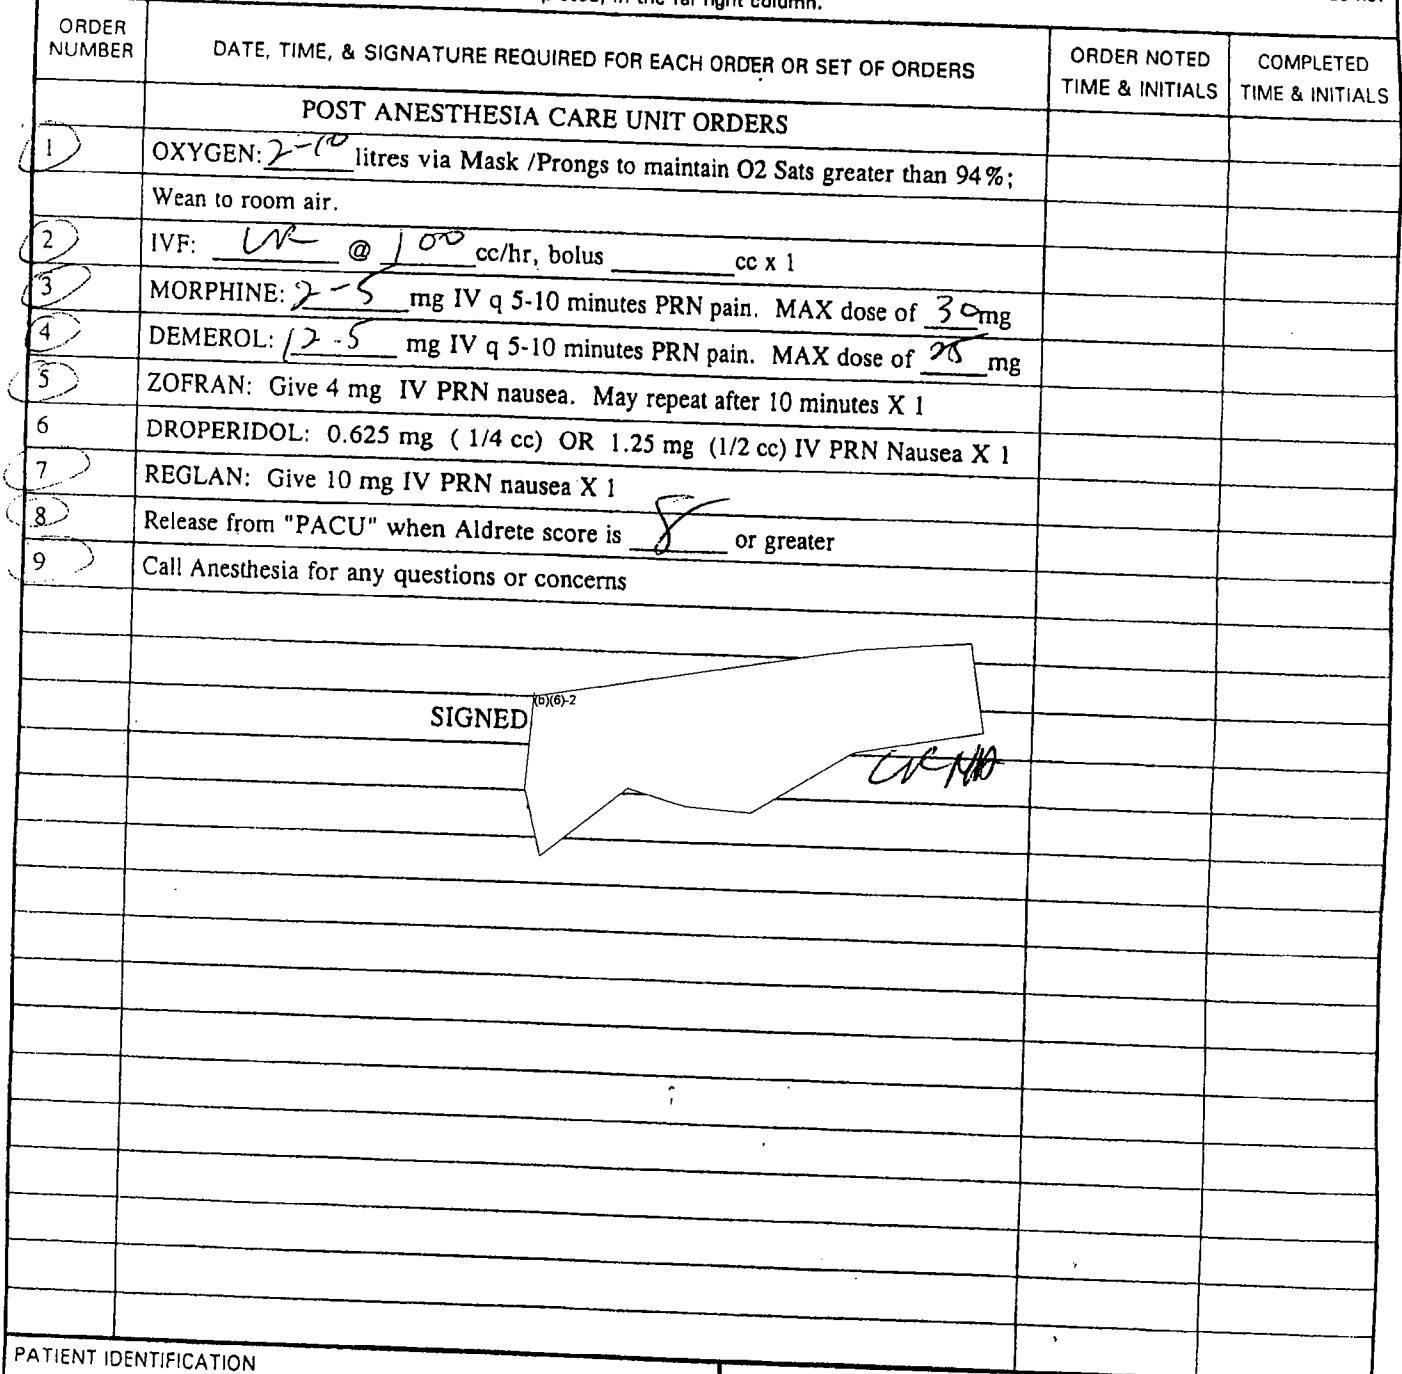 in the far right column.
ORDER NUMBER
DATE, TIME, & SIGNATURE REQUIRED FOR EACH ORDER OR SET OF ORDERS
ORDER NOTED TIME & INITIALS
COMPLETED TIME & INITIALS
POST ANESTHESIA CARE UNIT ORDERS
1 OXYGEN: 2-10 litres via Mask /Prongs to maintain O2 Sats greater than 94%;
Wean to room air.
2 IVF: LR @ 100 cc/hr, bolus ______ cc x 1
3 MORPHINE: 2-5 mg IV q 5-10 minutes PRN pain. MAX dose of 30 mg
4 DEMEROL: 12.5 mg IV q 5-10 minutes PRN pain. MAX dose of 25 mg
5 ZOFRAN: Give 4 mg IV PRN nausea. May repeat after 10 minutes X 1
6 DROPERIDOL: 0.625 mg ( 1/4 cc) OR 1.25 mg (1/2 cc) IV PRN Nausea X 1
7 REGLAN: Give 10 mg IV PRN nausea X 1
8 Release from "PACU" when Aldrete score is 8 or greater
9 Call Anesthesia for any questions or concerns
(b)(6)-2
SIGNED
CRNA
PATIENT IDENTIFICATION